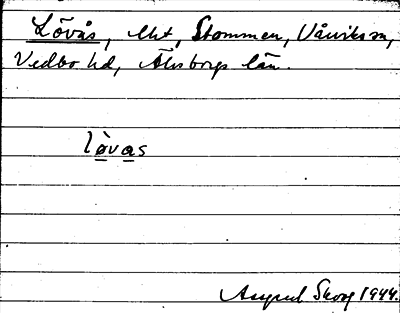 Lövås, lht, Stommen, Vårviks sn,
Vedbo hd, Älvsborgs län.
lòvas
Skog 1944.